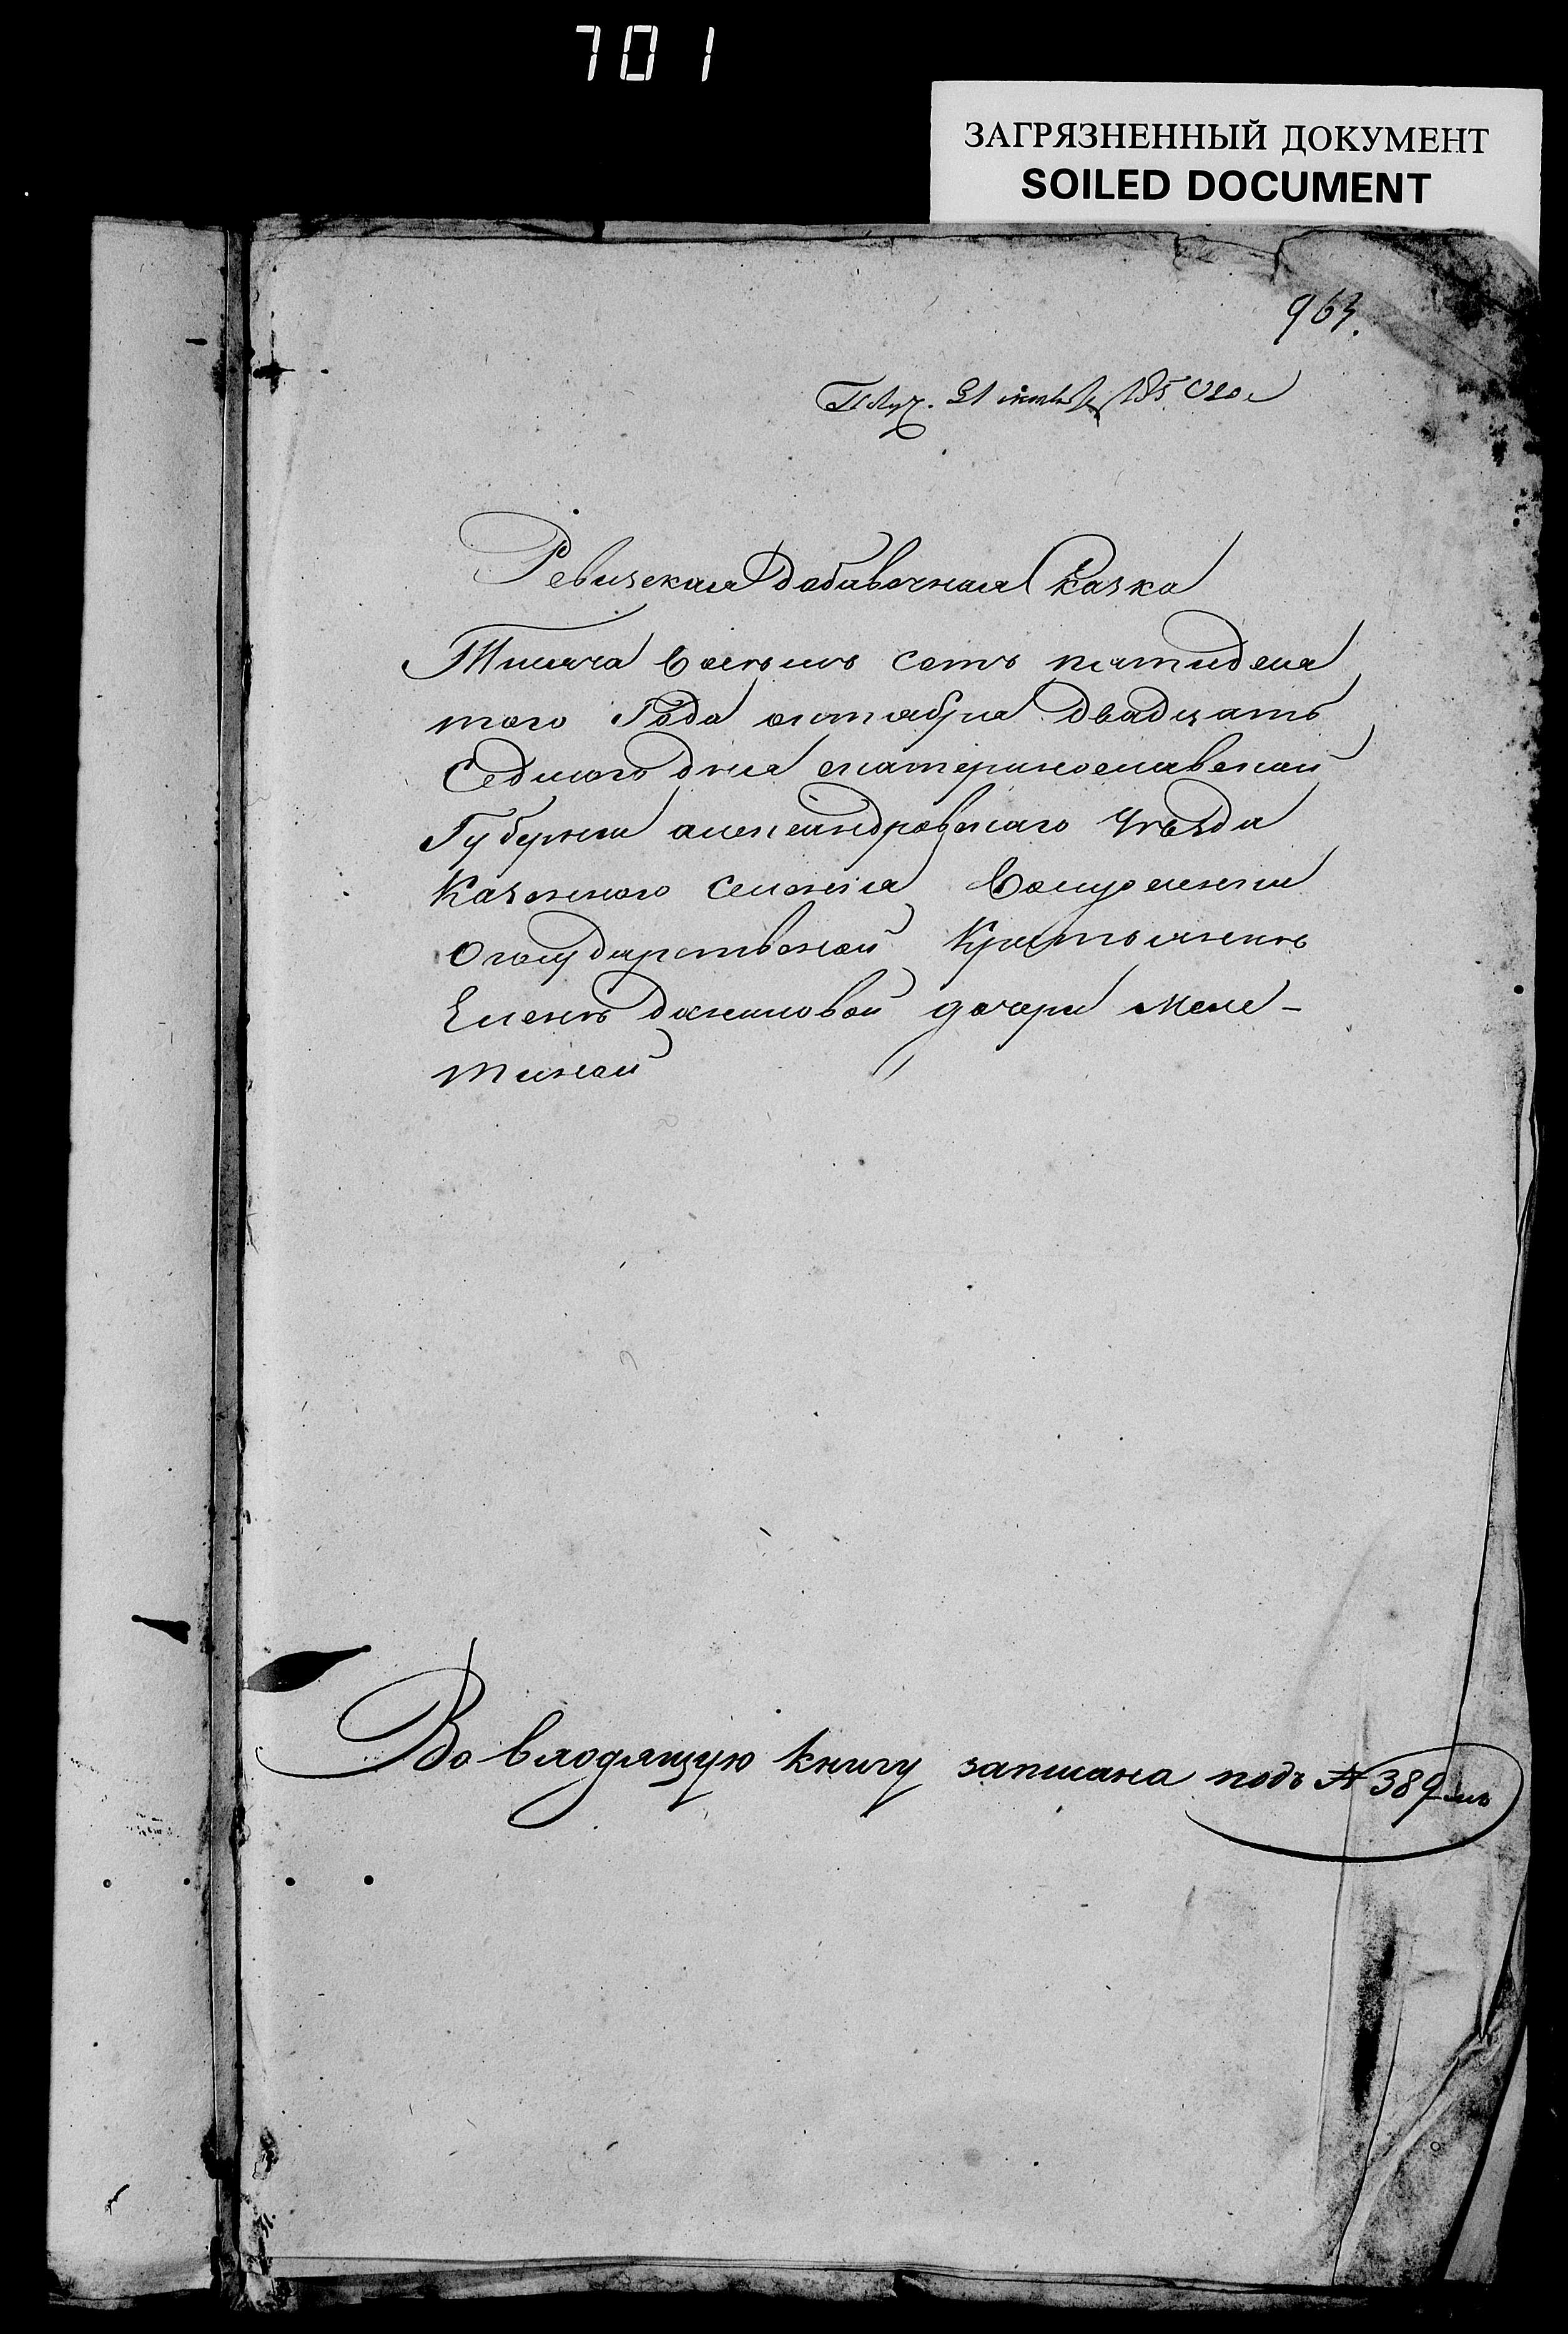 701
ЗАГРЯЗНЕННЫЙ ДОКУМЕНТ
SOILED DOCUMENT
963.
Получ. 31 октября 1850 года
Ревизская Добавочная Сказка
Тысяча восемь сотъ пятидеся
того Года октября двадцать
Седмого дня екатеринославской
Губернии александровскаго Уѣзда
Казенного Селения
о государственной Крестьянкѣ
Еленѣ даниловой дочери Меле-
тиной
Во входящую книгу записана подъ № 389 мъ